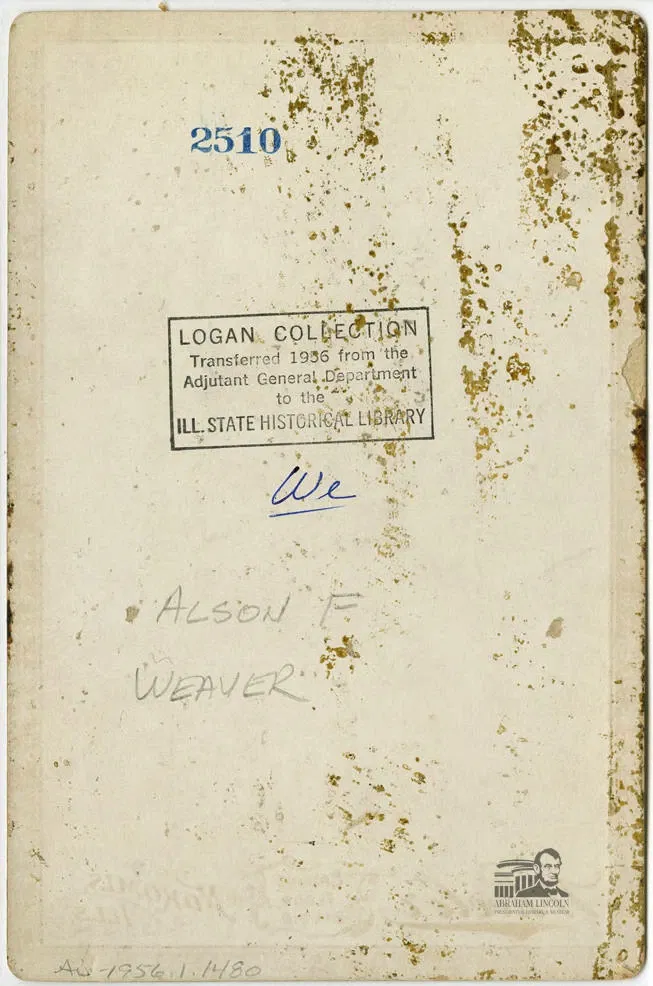 2510
LOGAN COLLECTION
Transferred 1956 from the
Adjutant General Department
to the
ILL. STATE HISTORICAL LIBRARY
We
ALSON F
WEAVER
ABRAHAM LINCOLN
PRESIDENTIAL LIBRARY & MUSEUM
AL-1956.1.1480